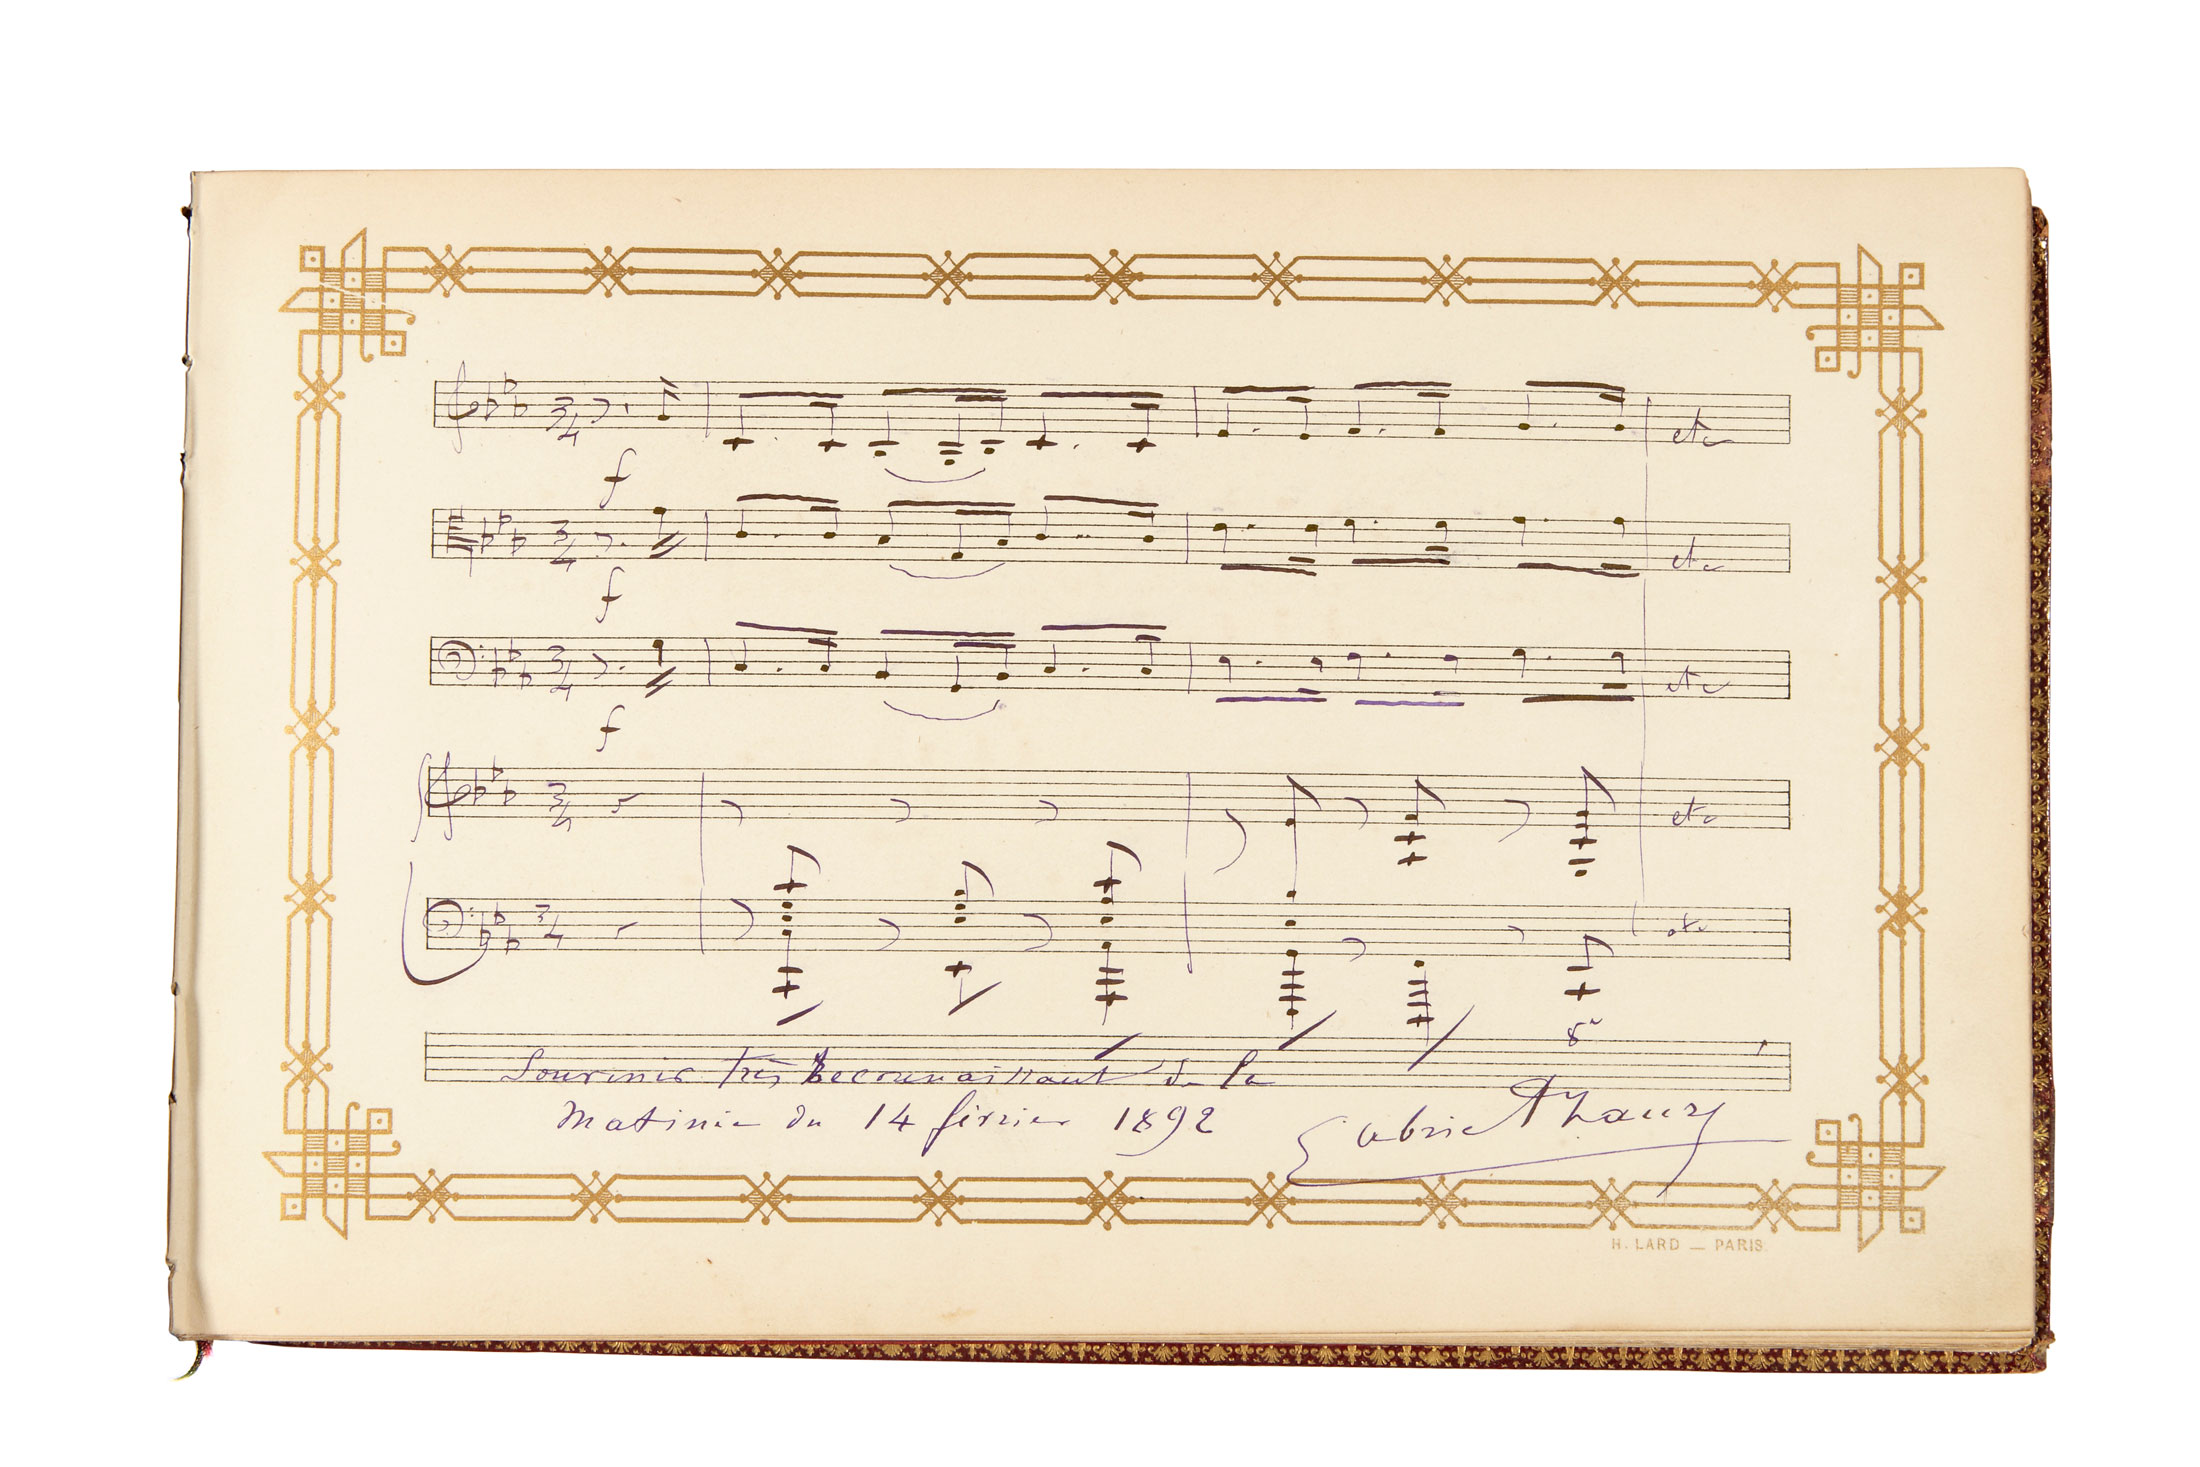 f
etc
f
etc
f
etc
etc
etc
8ª
Souvenir très Reconnaissant de la
Matinée du 14 février 1892
Gabriel Fauré
H. LARD — PARIS